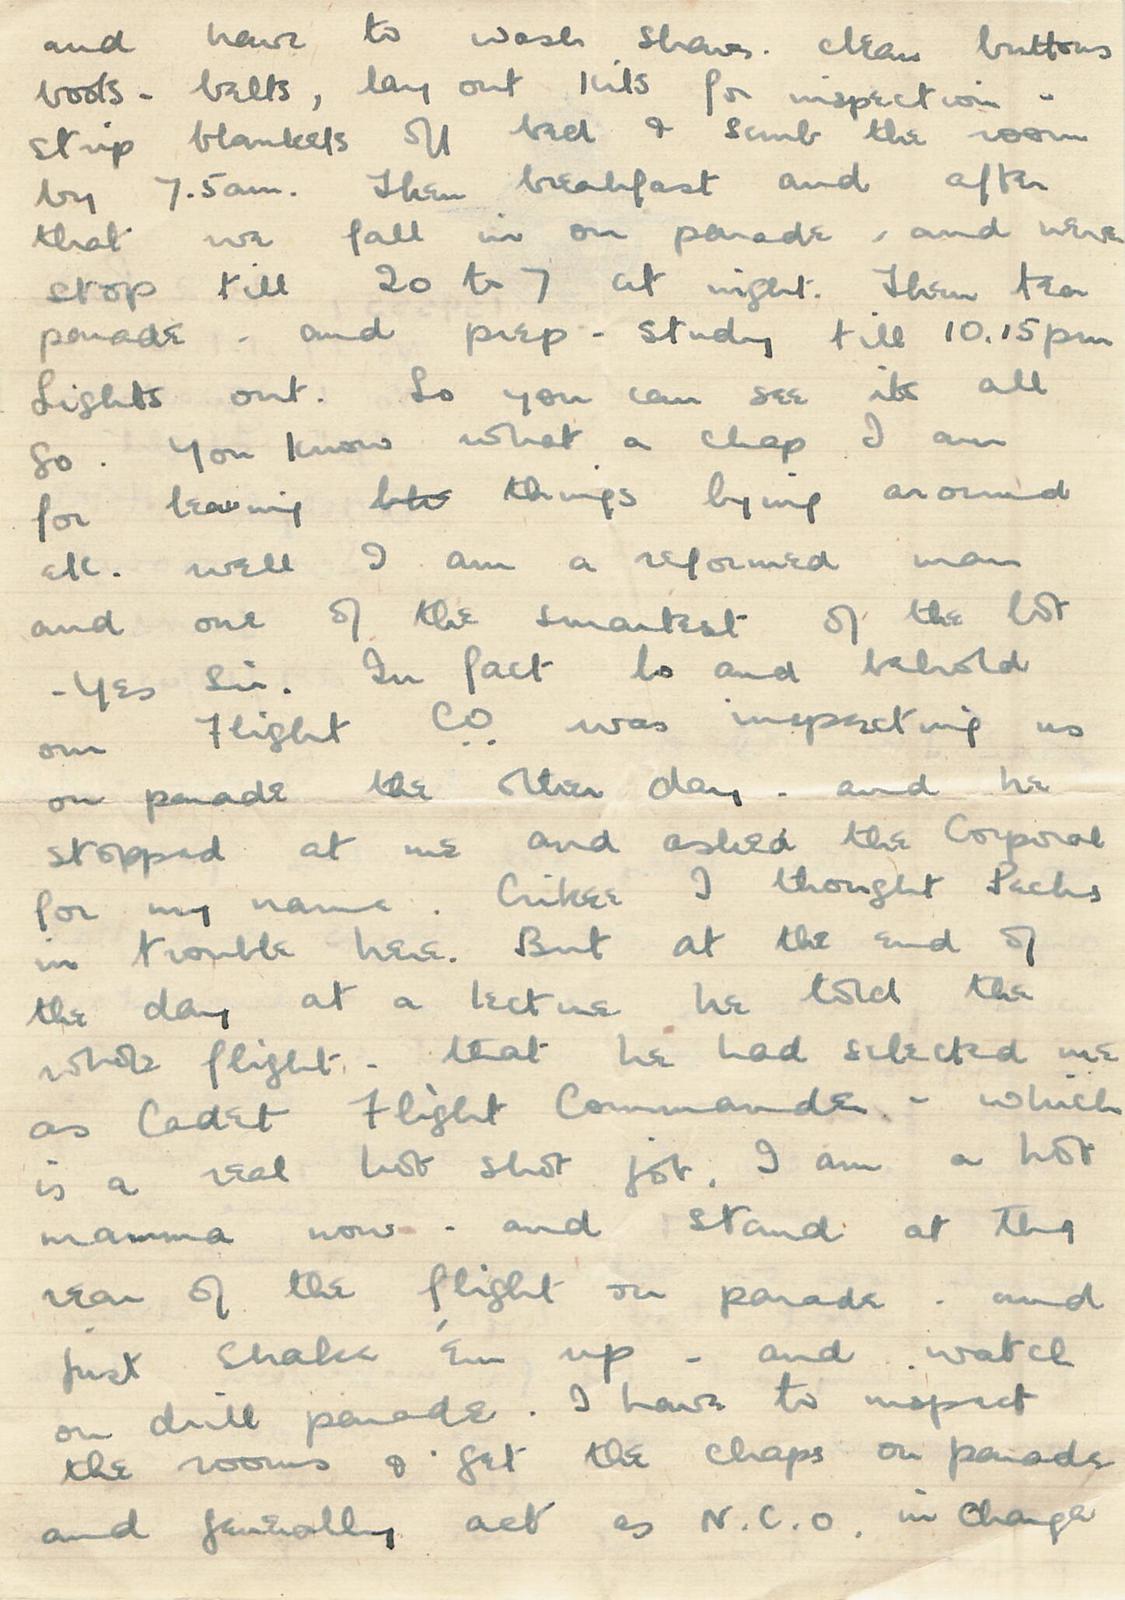 and have to wash shave. clean buttons
boots - belts, lay out kits for inspection -
strip blankets off bed & scrub the room
by 7.5am. Then breakfast and after
that we fall in on parade, and
stop till 20 to 7 at night. Then tea
parade - and prep - study till 10.15pm
Lights out. So you can see its all
go. You know what a chap I am
for leaving things lying around
etc. well I am a reformed man
and one of the smartest of the lot
- Yes Sir. In fact lo and behold
our Flight C.O. was inspecting us
on parade the other day - and he
stopped at me and asked the Corporal
for my name. Crikee I thought
in trouble here. But at the end of
the day at a lecture he told the
whole flight - that he had selected me
as Cadet Flight Commander - which
is a real hot shot job. I am a hot
mamma now - and stand at the
rear of the flight on parade - and
just shake 'em up - and watch
on drill parade. I have to inspect
the rooms & get the chaps on parade
and generally act as N.C.O. in Charge